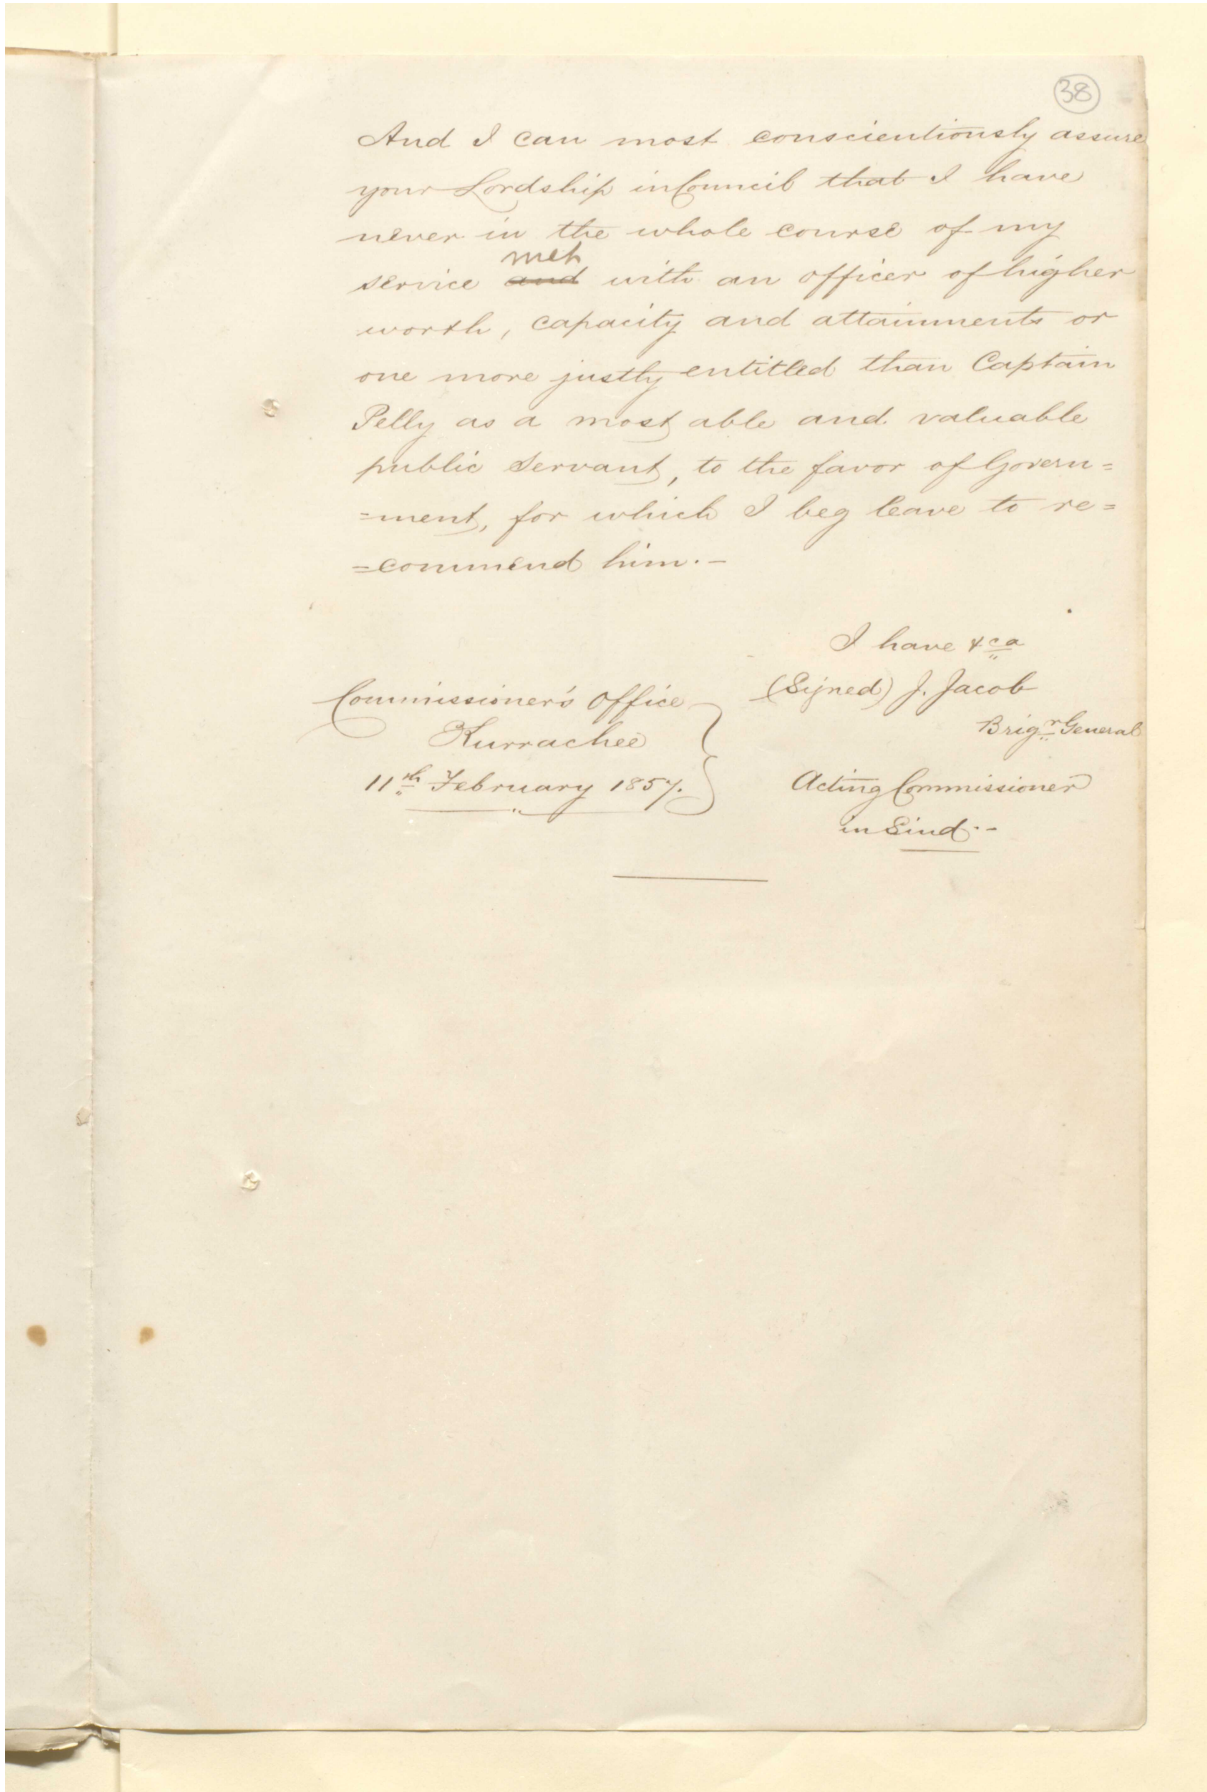 38
And I can most conscientiously assure
your Lordship in Council that I have
never in the whole course of my
met
service and with an officer of higher
worth, capacity and attainments or
one more justly entitled than Captain
Pelly as a most able and valuable
public servant, to the favor of Govern=
=ment, for which I beg leave to re=
=commend him.-
I have &ca
(Signed) J. Jacob
Brigr General
Acting Commissioner
in Sind.-
Commissioner's Office
Kurrachee
11th February 1857.